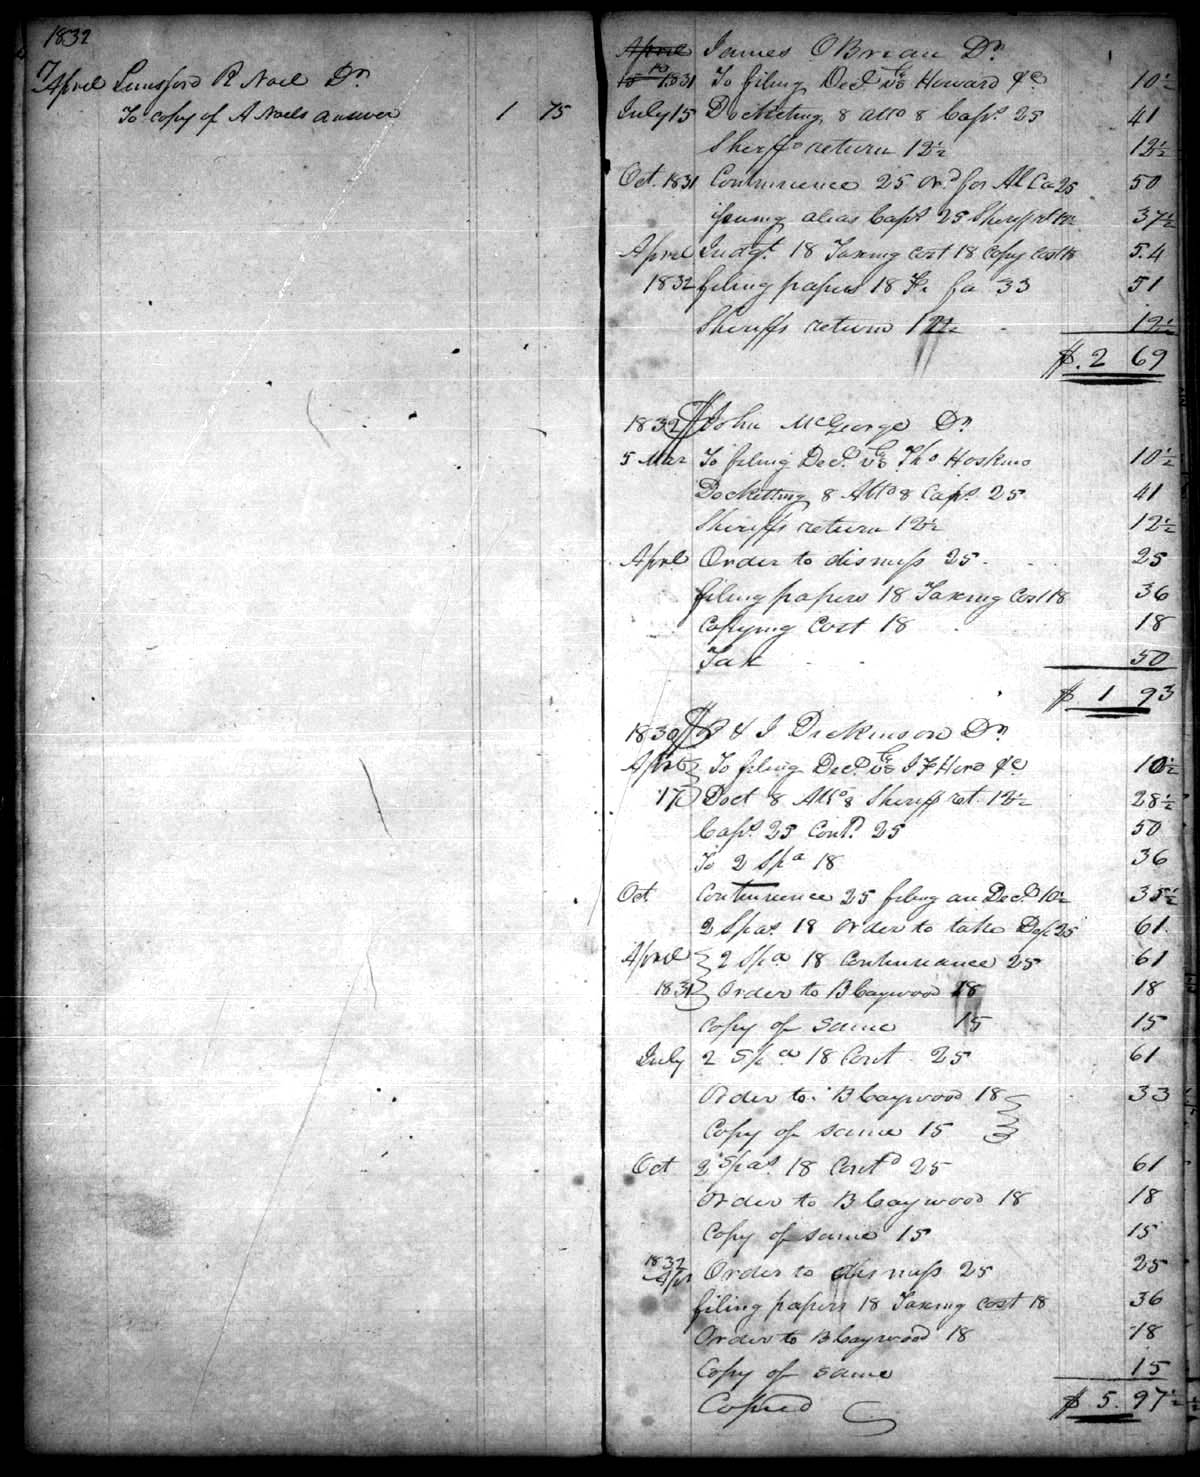 1832
17 April Lunsford R Noel Dr
To copy of A Noels answer 1 75
April James OBrian Dr
1831 To filing Decl. vs Howard &c 10½
July 15 Docketing 8 atto 8 Caps. 25 41
Sheriffs return 12½ 12½
Oct. 1831 Continuence 25 or.d for Al Ca 25 50
issuing alias Caps 25 Sheriff rt 12½ 37½
April Judgt. 18 Taxing cost 18 copy cost 18 5.4
1832 filing papers 18 Fi fa 33 51
Sheriffs return 12½ 12½
$. 2 69
1832 John McGeorge Dr
5 Mar To filing Decl. vs Tho Hoskins 10½
Docketting 8 Atto 8 Caps. 25 41
Sheriffs return 12½ 12½
April Order to dismiss 25 25
filing papers 18 Taxing Cost 18 36
Copying Cost 18 18
Tax 50
$ 1 93
1830 & J Dickinson Dr
April To filing Decl. vs J F Hord &c 10½
17 Doct 8 Atto 8 Sheriff ret. 12½ 28½
Caps. 25 Cont. 25 50
To 2 Spa 18 36
Oct Continuence 25 filing an Decl. 10½ 35½
2 Spas 18 order to take Dep 25 61
April 2 Spa 18 Continuance 25 61
1831 Order to B Caywood 18 18
Copy of same 15 15
July 2 Spa 18 Cont 25 61
Order to B Caywood 18 33
Copy of same 15
Oct 2 Spas 18 Contd 25 61
Order to B Caywood 18 18
Copy of same 15 15
1832 Apr Order to dismiss 25 25
filing papers 18 Taxing cost 18 36
Order to B Caywood 18 18
Copy of same 15
Copied $ 5. 97½